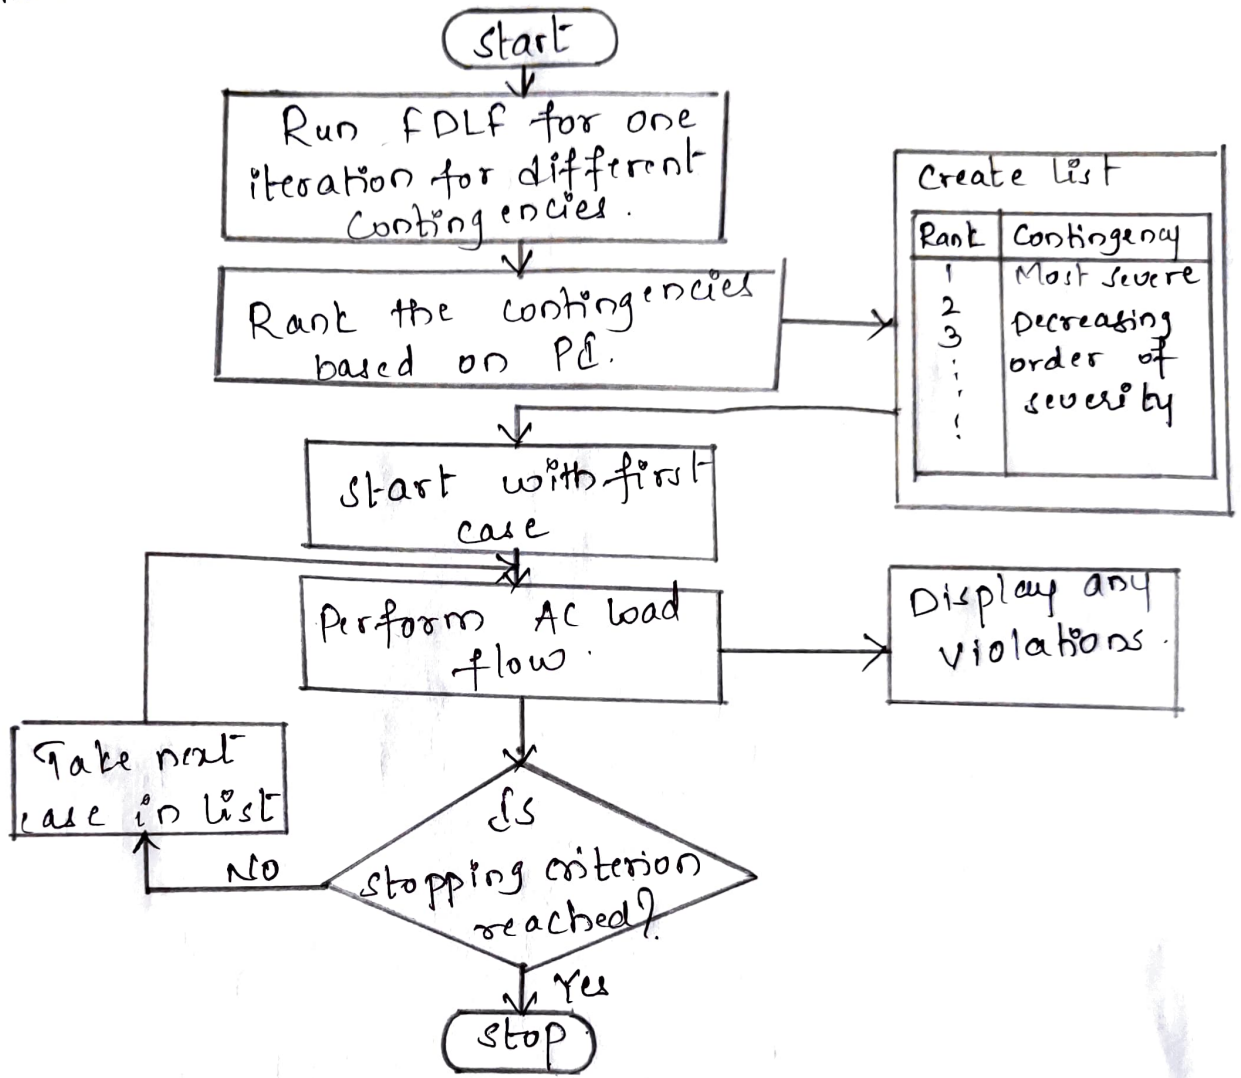 Start
Run FDLF for one
iteration for different
Contingencies.
Rank the contingencies
based on PI.
Create list
Rank Contingency
1 Most severe
2 Decreasing
3 order of
severity
start with first
case
Perform AC load
flow.
Display any
violations.
Take next
case in list
NO
Is
stopping criterion
reached?
Yes
stop